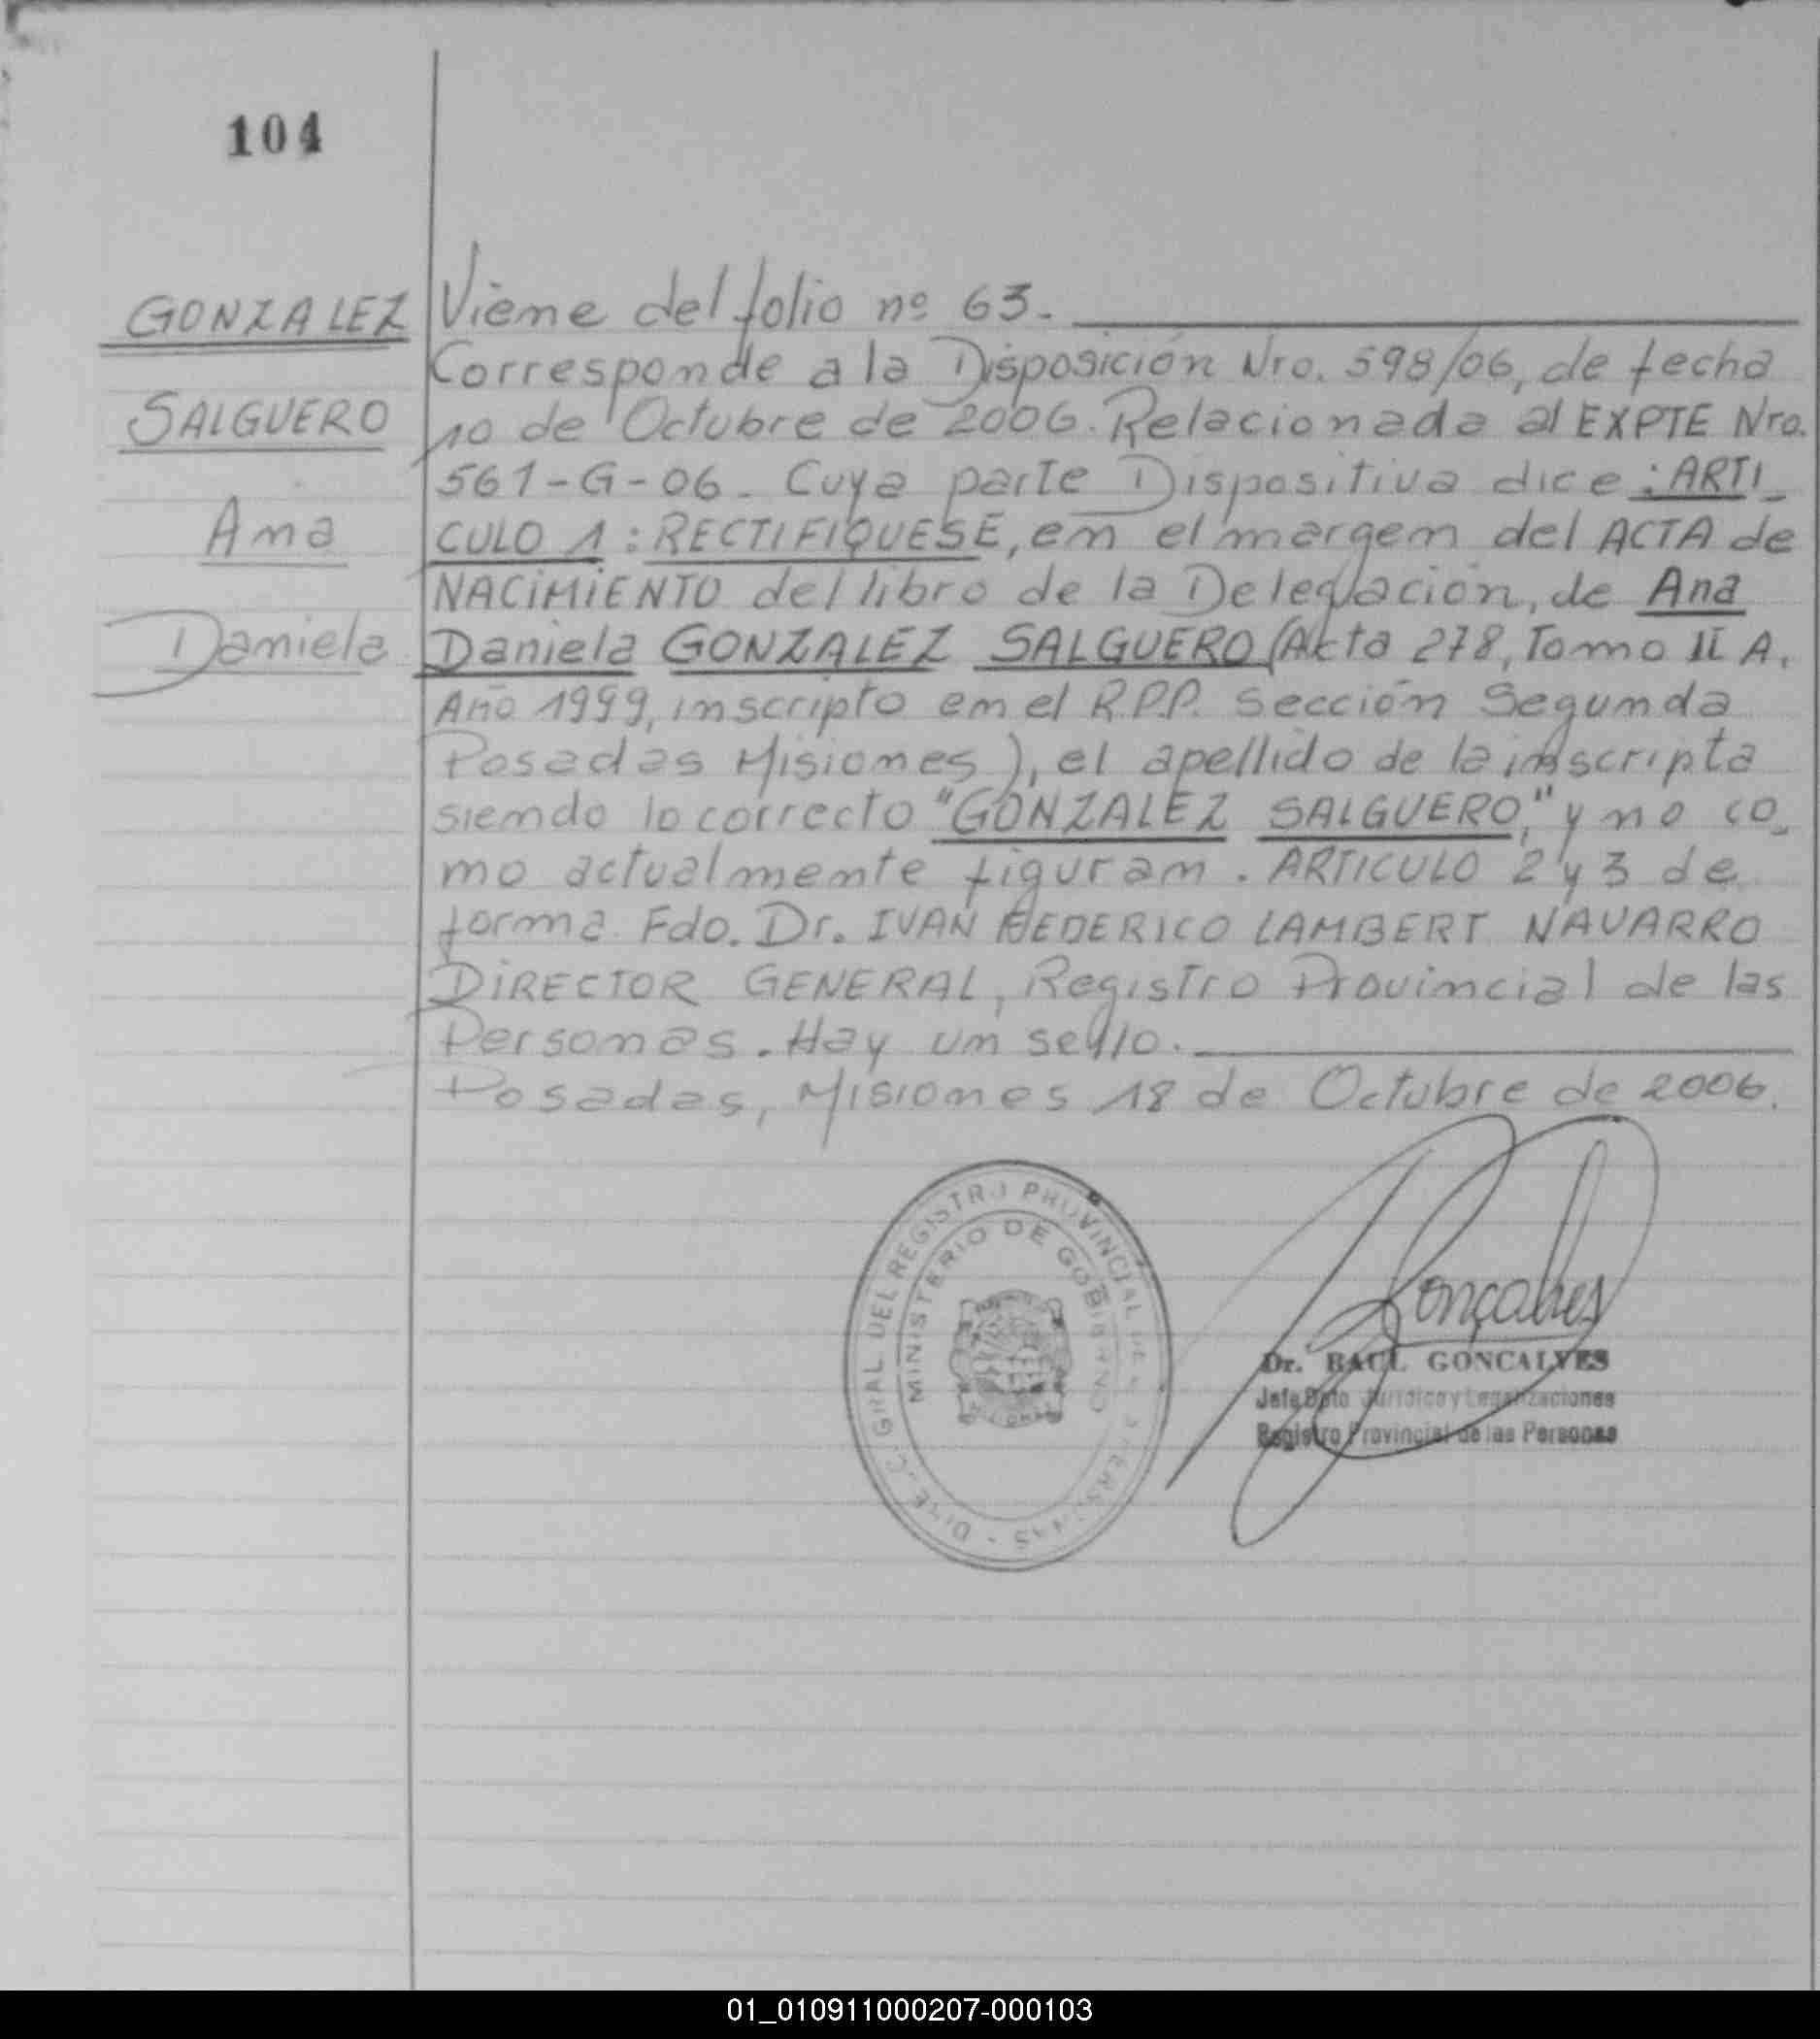 104
GONZALEZ
SALGUERO
Ana
Daniela
Viene del folio nº 63.
Corresponde a la Disposición Nro. 598/06, de fecha
10 de Octubre de 2006. Relacionada al EXPTE Nro.
561-G-06. Cuya parte Dispositiva dice: ARTI_
CULO 1: RECTIFIQUESE, en el margen del ACTA de
NACIMIENTO del libro de la Delegación, de Ana
Daniela GONZALEZ SALGUERO (Acta 278, Tomo II A,
Año 1999, inscripto en el R.P.P. Sección Segunda
Posadas Misiones), el apellido de la inscripta
siendo lo correcto "GONZALEZ SALGUERO," y no co_
mo actualmente figuran. ARTICULO 2 y 3 de
forma. Fdo. Dr. IVAN FEDERICO LAMBERT NAVARRO
DIRECTOR GENERAL, Registro Provincial de las
Personas. Hay un sello.
Posadas, Misiones 18 de Octubre de 2006.
GRAL DEL REGISTRO PROVINCIAL
MINISTERIO DE GOBIERNO
Gonçalves
Dr. RAUL GONCALVES
Jefe Dpto Jurídico y Legalizaciones
Registro Provincial de las Personas
01_010911000207-000103